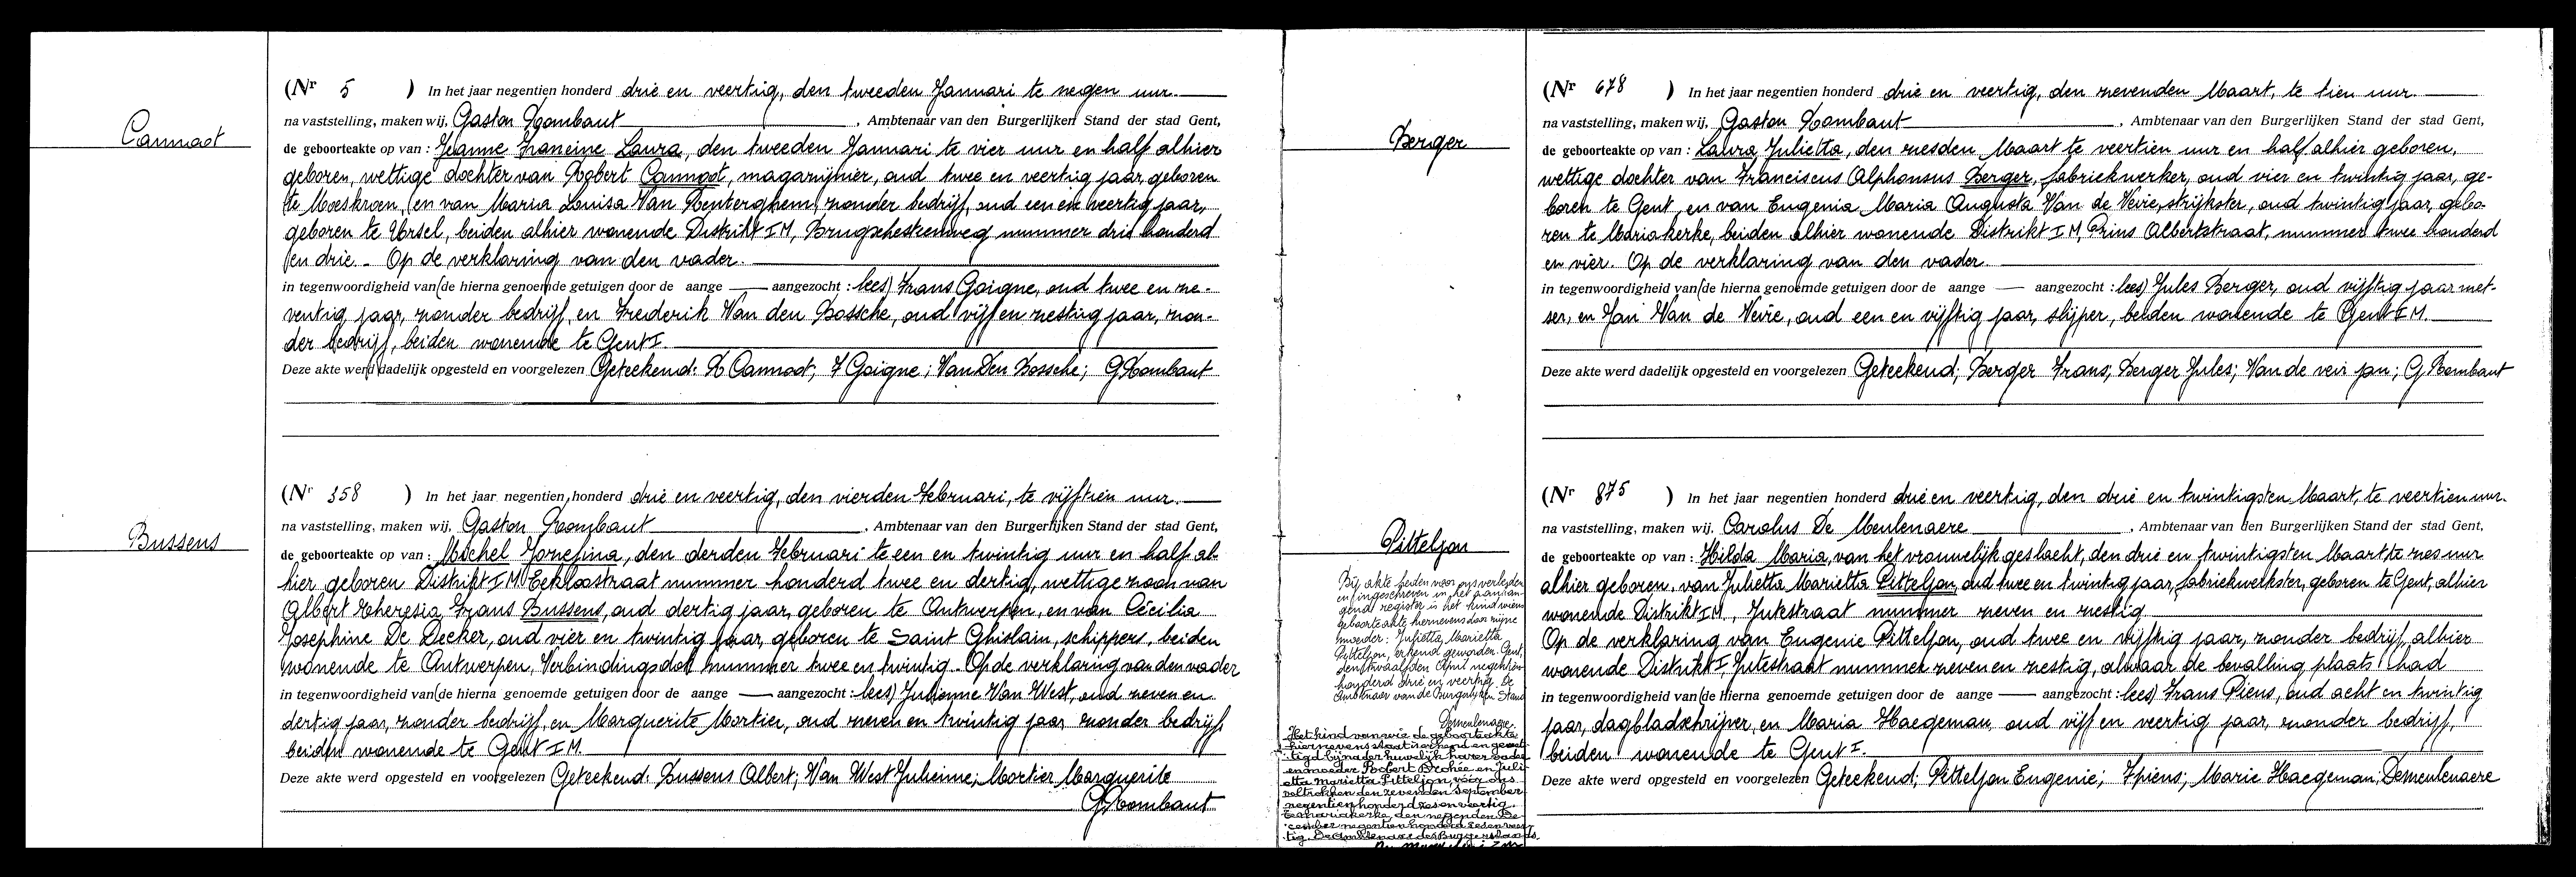 Cannoot
(Nr 5 ) In het jaar negentien honderd drie en veertig, den tweeden Januari te negen uur.
na vaststelling, maken wij, Gaston Rombaut, Ambtenaar van den Burgerlijken Stand der stad Gent,
de geboorteakte op van : Jeanne Francine Laura, den tweeden Januari te vier uur en half alhier
geboren, wettige dochter van Robert Cannoot, magazijnier, oud twee en veertig jaar, geboren
te Moeskroen, en van Maria Louisa Van Renterghem, zonder bedrijf, oud een en veertig jaar,
geboren te Ursel, beiden alhier wonende Distrikt I M, Brugschesteenweg nummer drie honderd
en drie. Op de verklaring van den vader.
in tegenwoordigheid van (de hierna genoemde getuigen door de aange — aangezocht : lees) Frans Goigne, oud twee en ze-
ventig jaar, zonder bedrijf, en Frederik Van den Bossche, oud vijf en zestig jaar, zon-
der bedrijf, beiden wonende te Gent I.
Deze akte werd dadelijk opgesteld en voorgelezen Geteekend: R Cannoot; F Goigne; Van Den Bossche; G Rombaut
Bussens
(Nr 358 ) In het jaar negentien honderd drie en veertig, den vierden Februari, te vijftien uur.
na vaststelling, maken wij, Gaston Rombaut, Ambtenaar van den Burgerlijken Stand der stad Gent,
de geboorteakte op van : Michel Jozefina, den derden Februari te een en twintig uur en half al-
hier geboren Distrikt I M Eekloostraat nummer honderd twee en dertig, wettige zoon van
Albert Theresia Frans Bussens, oud dertig jaar, geboren te Antwerpen, en van Cécilia
Josephine De Decker, oud vier en twintig jaar, geboren te Saint Ghislain, schippers, beiden
wonende te Antwerpen, Verbindingsdok nummer twee en twintig. Op de verklaring van den vader
in tegenwoordigheid van (de hierna genoemde getuigen door de aange — aangezocht : lees) Julienne Van West, oud zeven en
dertig jaar, zonder bedrijf, en Marguerite Mortier, oud zeven en twintig jaar zonder bedrijf,
beiden wonende te Gent I M.
Deze akte werd opgesteld en voorgelezen Geteekend: Bussens Albert; Van West Julienne; Mortier Marguerite
G Rombaut
Berger
(Nr 678 ) In het jaar negentien honderd drie en veertig, den zevenden Maart, te tien uur
na vaststelling, maken wij, Gaston Rombaut, Ambtenaar van den Burgerlijken Stand der stad Gent,
de geboorteakte op van : Laura Julietta, den zesden Maart te veertien uur en half alhier geboren,
wettige dochter van Franciscus Alphonsus Berger, fabriekwerker, oud vier en twintig jaar, ge-
boren te Gent, en van Eugenia Maria Augusta Van de Veire, strijkster, oud twintig jaar, gebo-
ren te Mariakerke, beiden alhier wonende Distrikt I M, Prins Albertstraat, nummer twee honderd
en vier. Op de verklaring van den vader.
in tegenwoordigheid van (de hierna genoemde getuigen door de aange — aangezocht : lees) Jules Berger, oud vijftig jaar met-
ser, en Jan Van de Veire, oud een en vijftig jaar, slijper, beiden wonende te Gent I M.
Deze akte werd dadelijk opgesteld en voorgelezen Geteekend; Berger Frans; Berger Jules; Van de veir jan; G Rombaut
Pitteljon
Bij akte heden voor ons verleden
en ingeschreven in het aanhan-
gend register is het kind wiens
geboorteakte hiernevens door zijne
moeder: Julietta Marietta
Pitteljon, erkend geworden. Gent,
den twaalfden April negentien
honderd drie en veertig. De
Ambtenaar van de Burgerlijken Stand
Demeulenaere.
Het kind van wie de geboorteakte
hiernevens staat is erkend en gewet-
tigd bij nader huwelijk harer vader
en moeder Robert Brohée en Juli-
etta Marietta Pitteljon, vóór ons
voltrokken den zevenden September
negentienhonderd zes en veertig.
Te Mariakerke, den negenden De-
cember negentien honderd zes en veer-
tig. De Ambtenaar des Burgerstands.
(Nr 875 ) In het jaar negentien honderd drie en veertig, den drie en twintigsten Maart, te veertien uur.
na vaststelling, maken wij, Carolus De Meulenaere, Ambtenaar van den Burgerlijken Stand der stad Gent,
de geboorteakte op van : Hilda Maria, van het vrouwelijk geslacht, den drie en twintigsten Maart te zes uur
alhier geboren, van Julietta Marietta Pitteljon, oud twee en twintig jaar, fabriekwerkster, geboren te Gent, alhier
wonende Distrikt I M, Jutestraat nummer zeven en zestig.
Op de verklaring van Eugenie Pitteljon, oud twee en vijftig jaar, zonder bedrijf, alhier
wonende Distrikt I, Jutestraat nummer zeven en zestig, alwaar de bevalling plaats had
in tegenwoordigheid van (de hierna genoemde getuigen door de aange — aangezocht : lees) Frans Piens, oud acht en twintig
jaar, dagbladschrijver, en Maria Haegeman, oud vijf en veertig jaar, zonder bedrijf,
beiden wonende te Gent I.
Deze akte werd opgesteld en voorgelezen Geteekend; Pitteljon Eugenie; F piens; Marie Haegeman; Demeulenaere